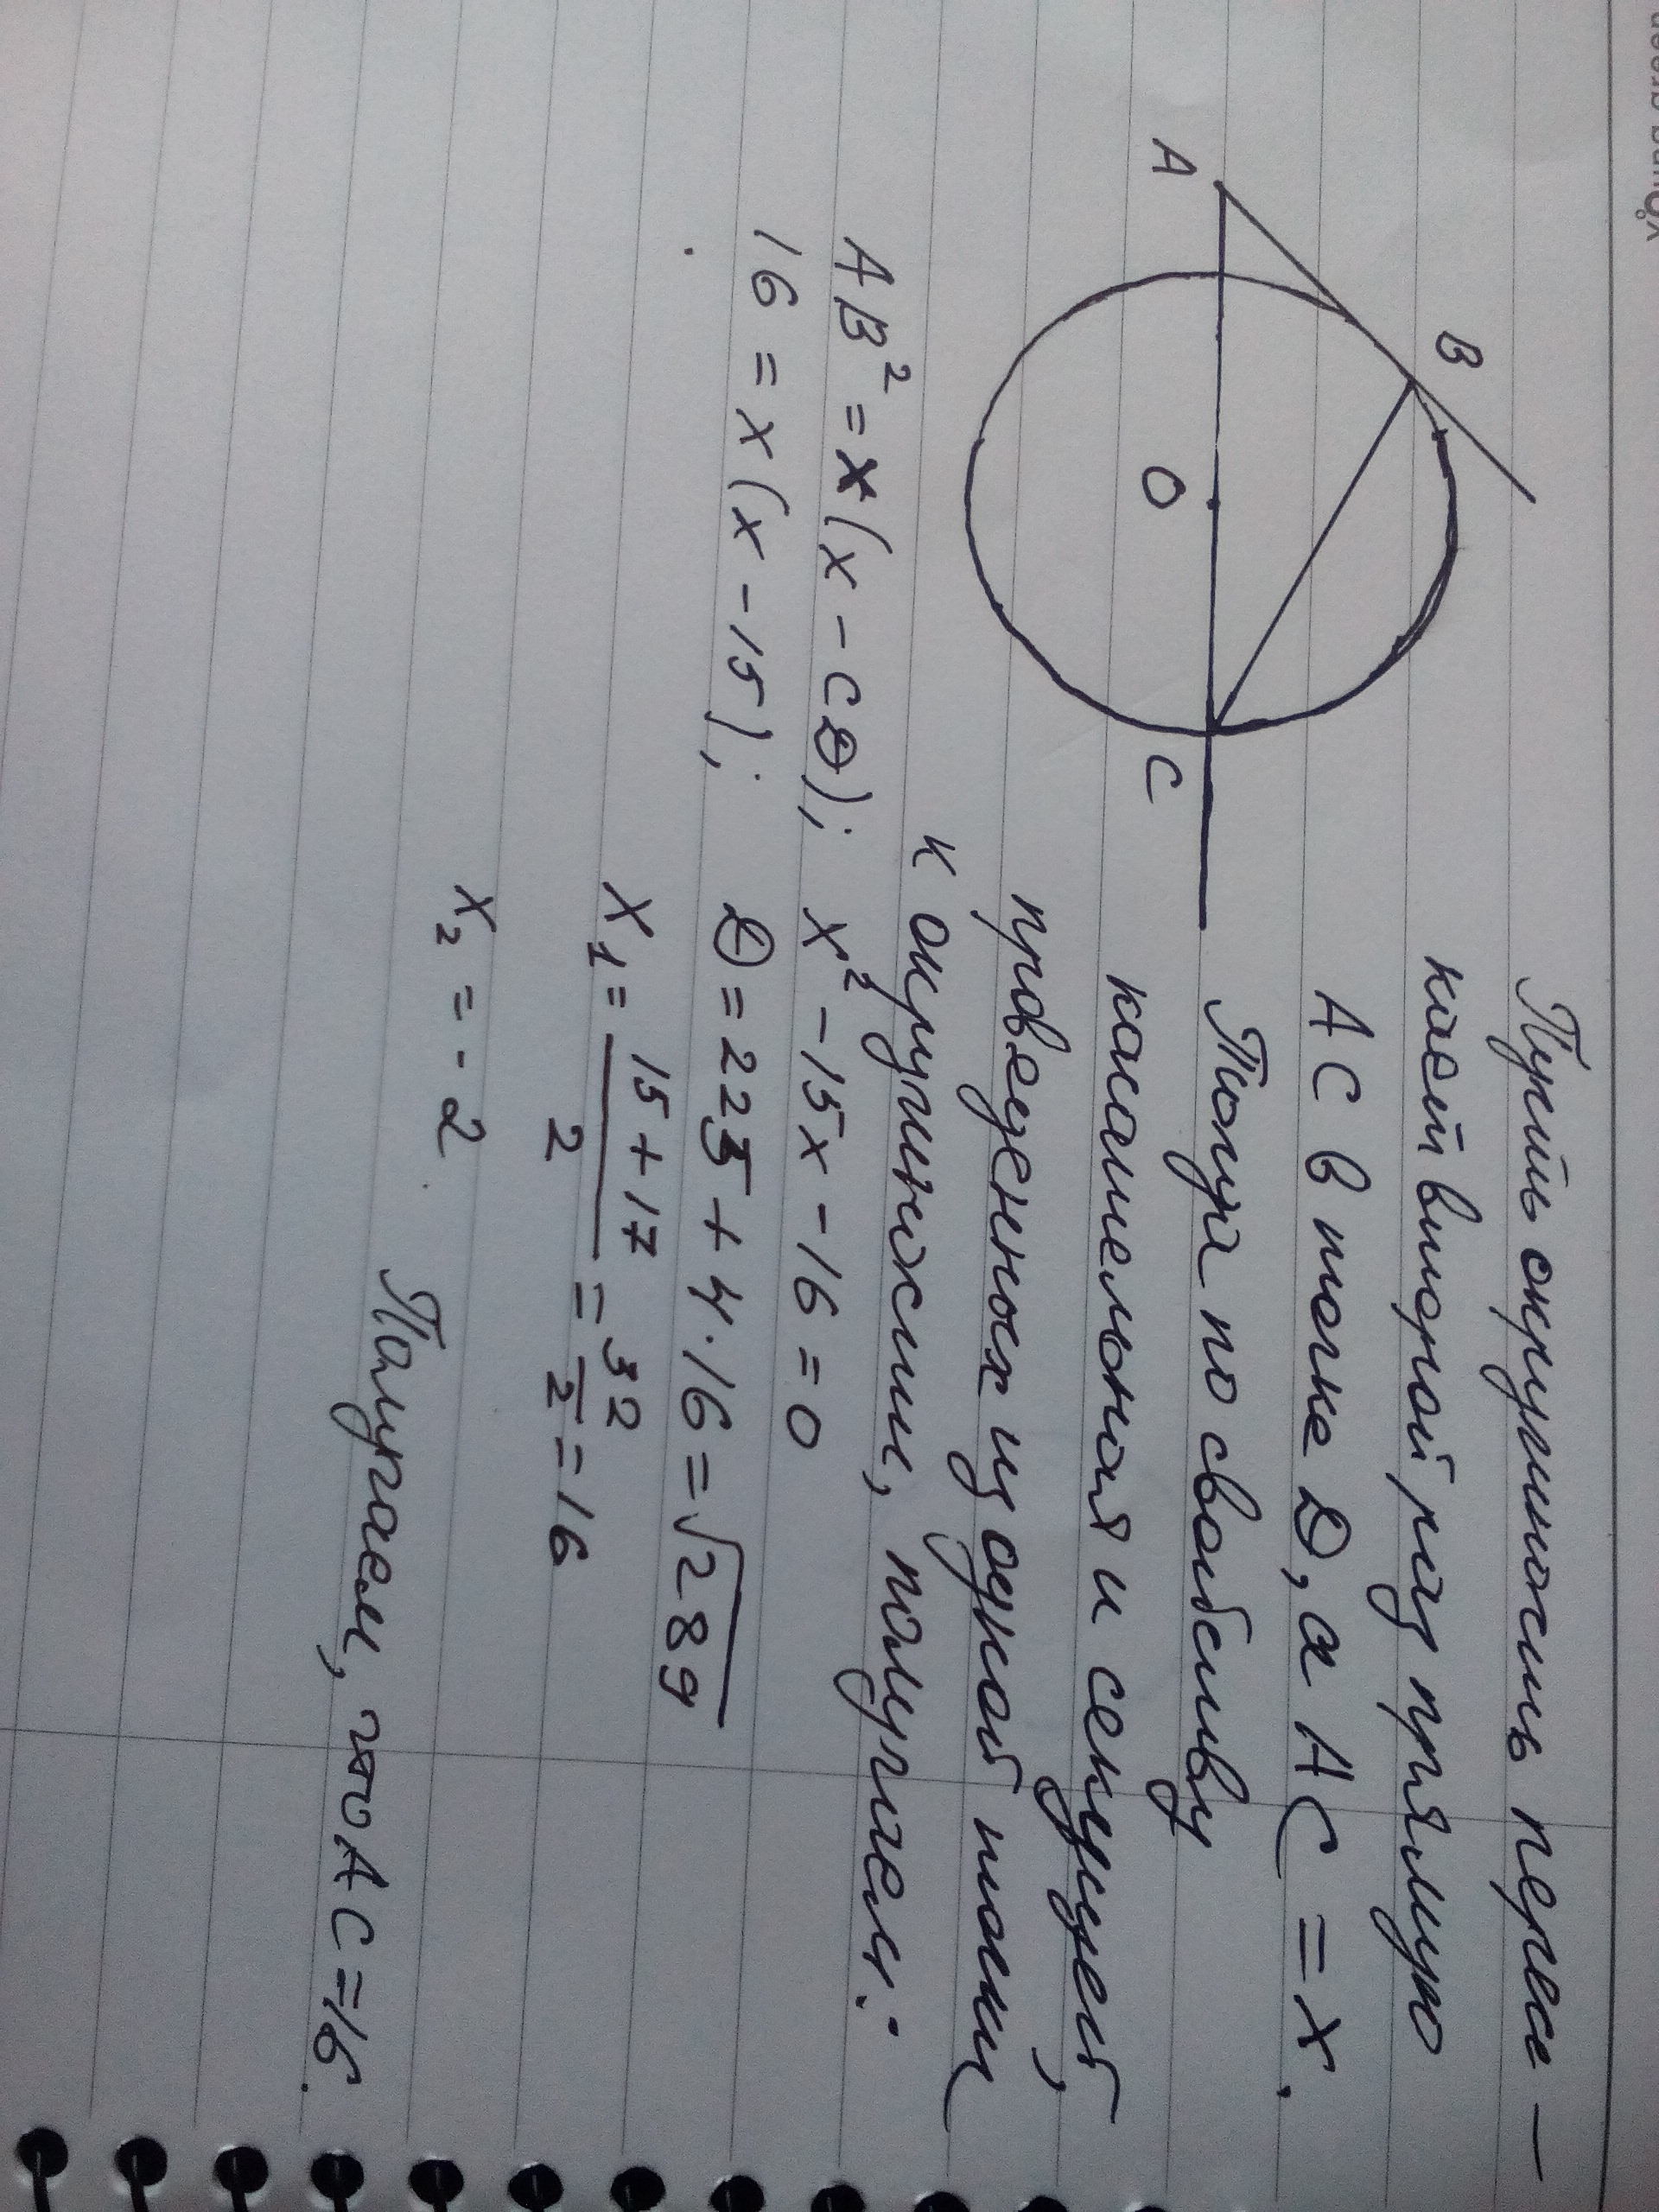 Пусть окружность пересе-
кает второй раз прямую
АС в точке D, а АС = х.
Тогда по свойству
касательной и секущей,
проведенных из одной точки
к окружности, получаем:
A
B
O
C
AB² = x(x - CD); x² - 15x - 16 = 0
16 = x(x - 15); D = 225 + 4·16 = √289
x₁ = 15 + 17 / 2 = 32 / 2 = 16
x₂ = - 2
Получаем, что АС = 16.